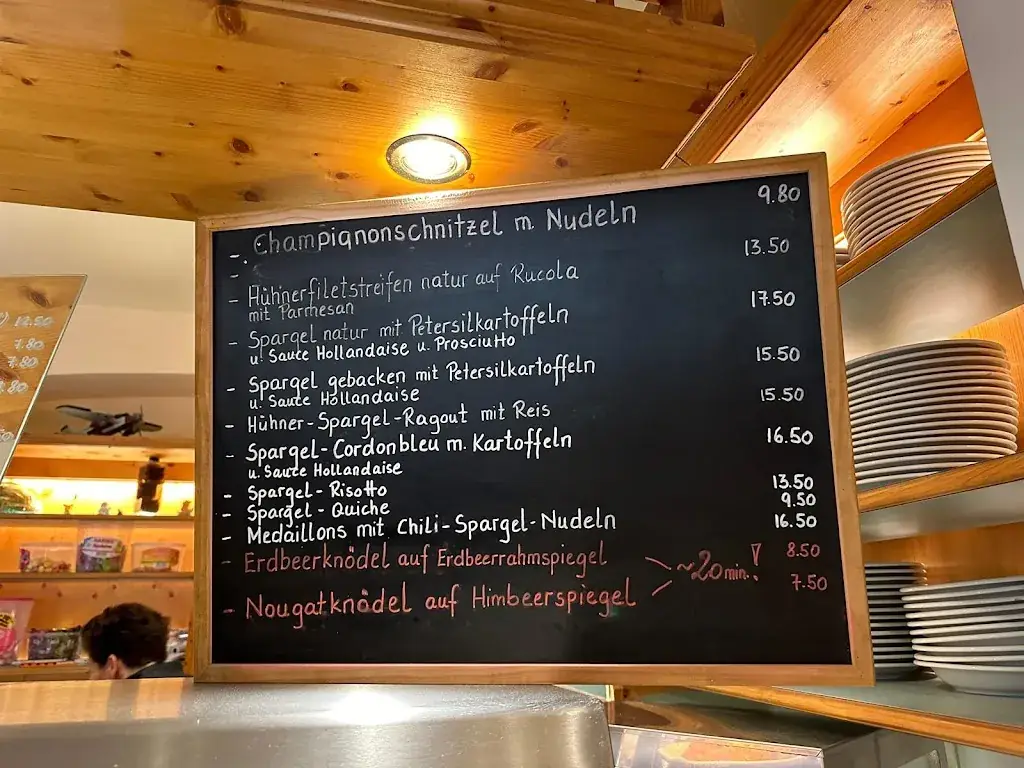 12.50
7.80
7.80
- Champignonschnitzel m. Nudeln 9.80
- Hühnerfiletstreifen natur auf Rucola 13.50
mit Parmesan
- Spargel natur mit Petersilkartoffeln 17.50
u. Sauce Hollandaise u. Prosciutto
- Spargel gebacken mit Petersilkartoffeln 15.50
u. Sauce Hollandaise
- Hühner-Spargel-Ragout mit Reis 15.50
- Spargel-Cordonbleu m. Kartoffeln 16.50
u. Sauce Hollandaise
- Spargel-Risotto 13.50
- Spargel-Quiche 9.50
- Medaillons mit Chili-Spargel-Nudeln 16.50
- Erdbeerknödel auf Erdbeerrahmspiegel 8.50
~20 min.!
- Nougatknödel auf Himbeerspiegel 7.50